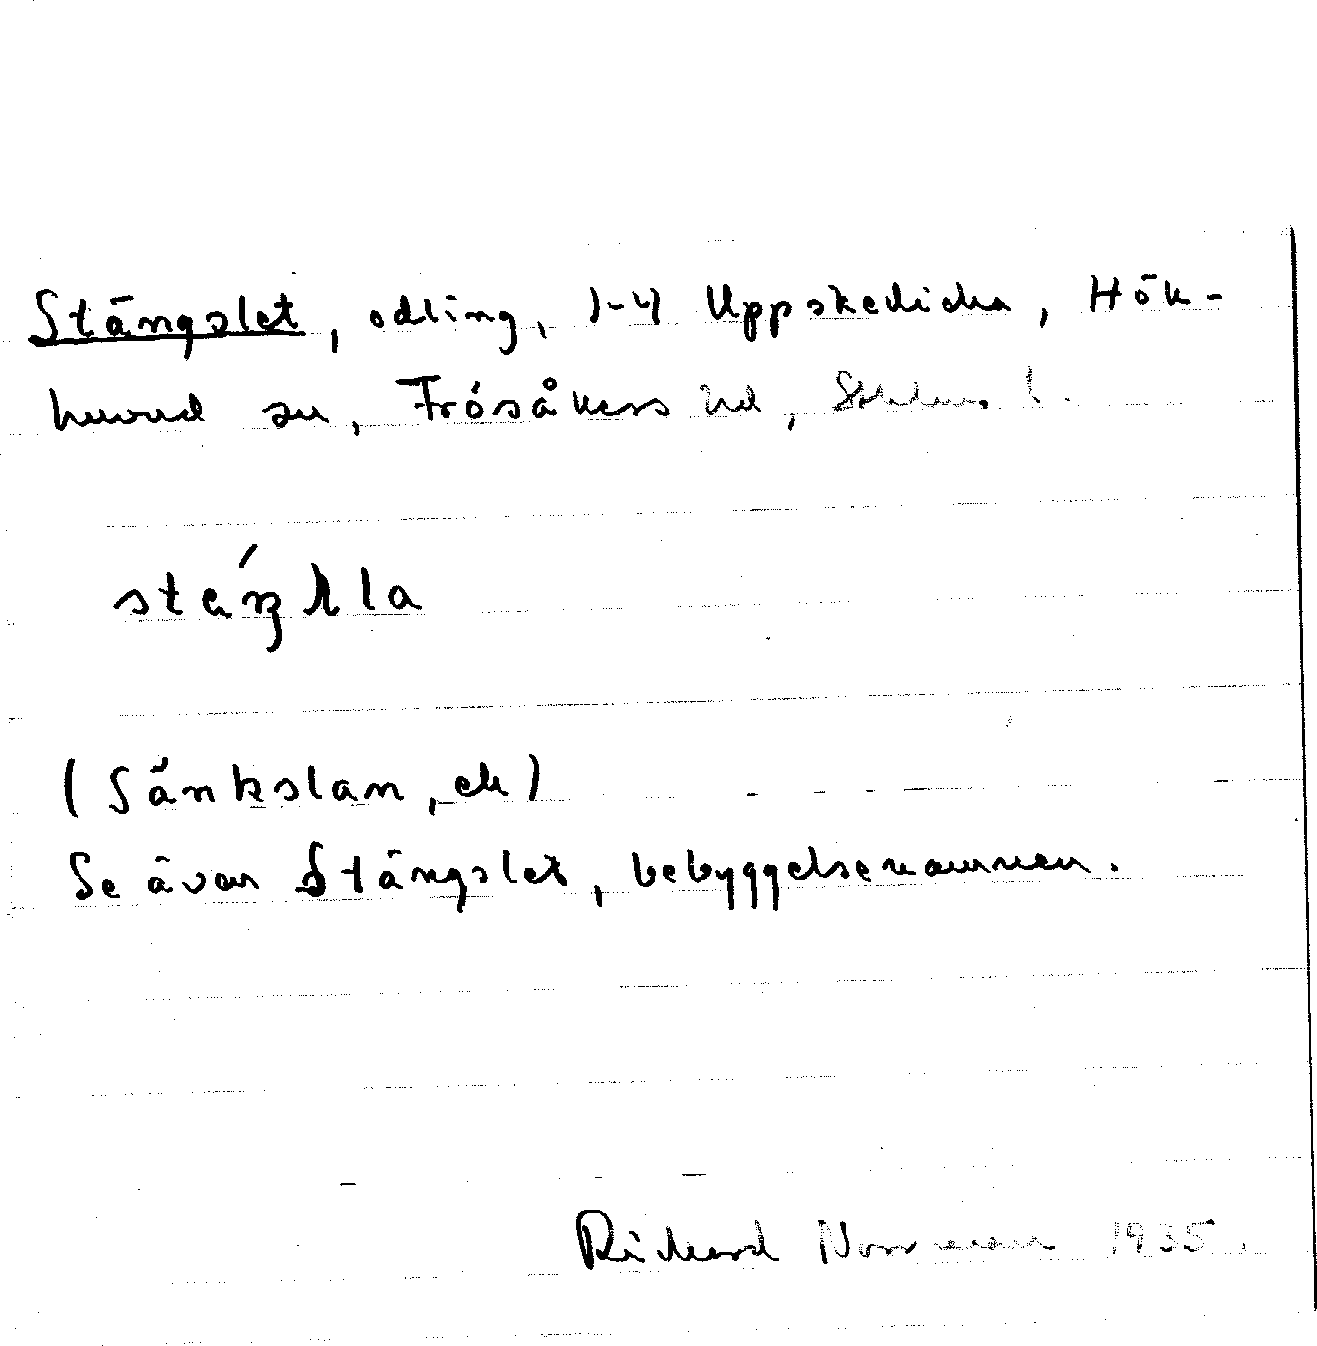 Stängslet, odling, 1-4 Uppskedicka, Hök-
huvud sn, Frösåkers hd, Sthlms l.
(Sänkslan, ek)
Se även Stängslet, bebyggelsenamnen.
Richard Norrman 1935.